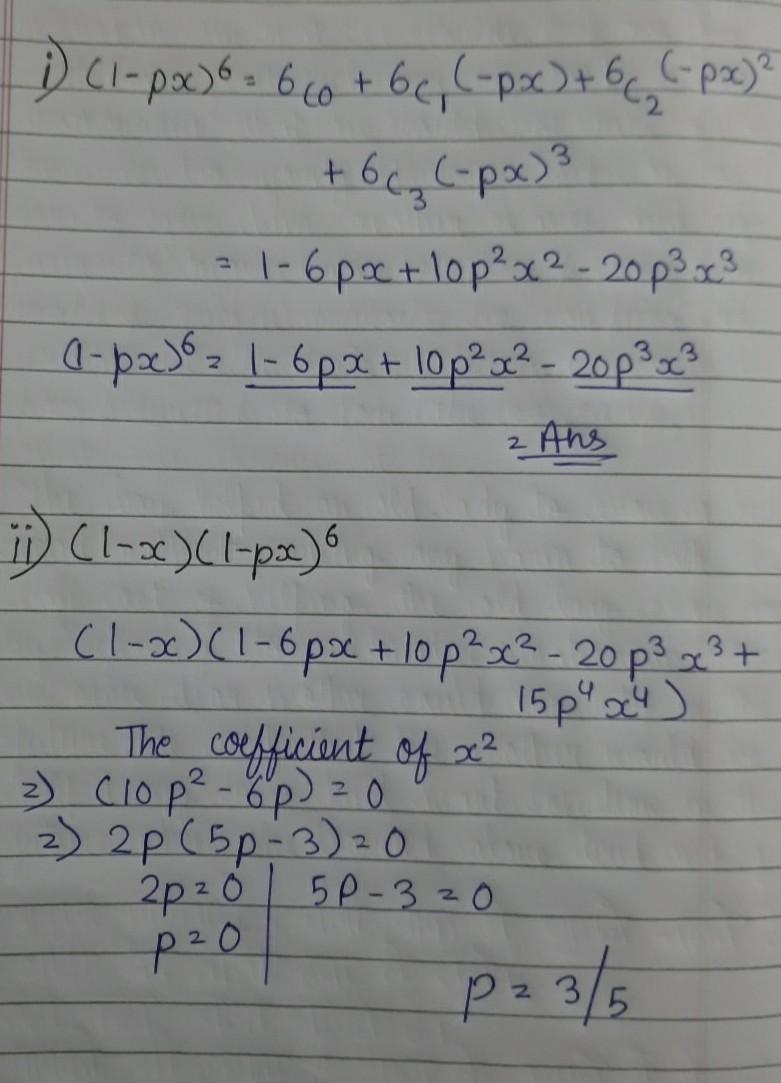 i) (1-px)⁶ = 6C0 + 6C₁(-px) + 6C₂(-px)²
+ 6C₃(-px)³
= 1 - 6px + 10p²x² - 20p³x³
(1-px)⁶ = 1 - 6px + 10p²x² - 20p³x³
= Ans
ii) (1-x)(1-px)⁶
(1-x)(1-6px + 10p²x² - 20p³x³ +
15p⁴x⁴)
The coefficient of x²
=) (10p² - 6p) = 0
=) 2p(5p-3) = 0
2p = 0 | 5P - 3 = 0
p = 0
p = 3/5